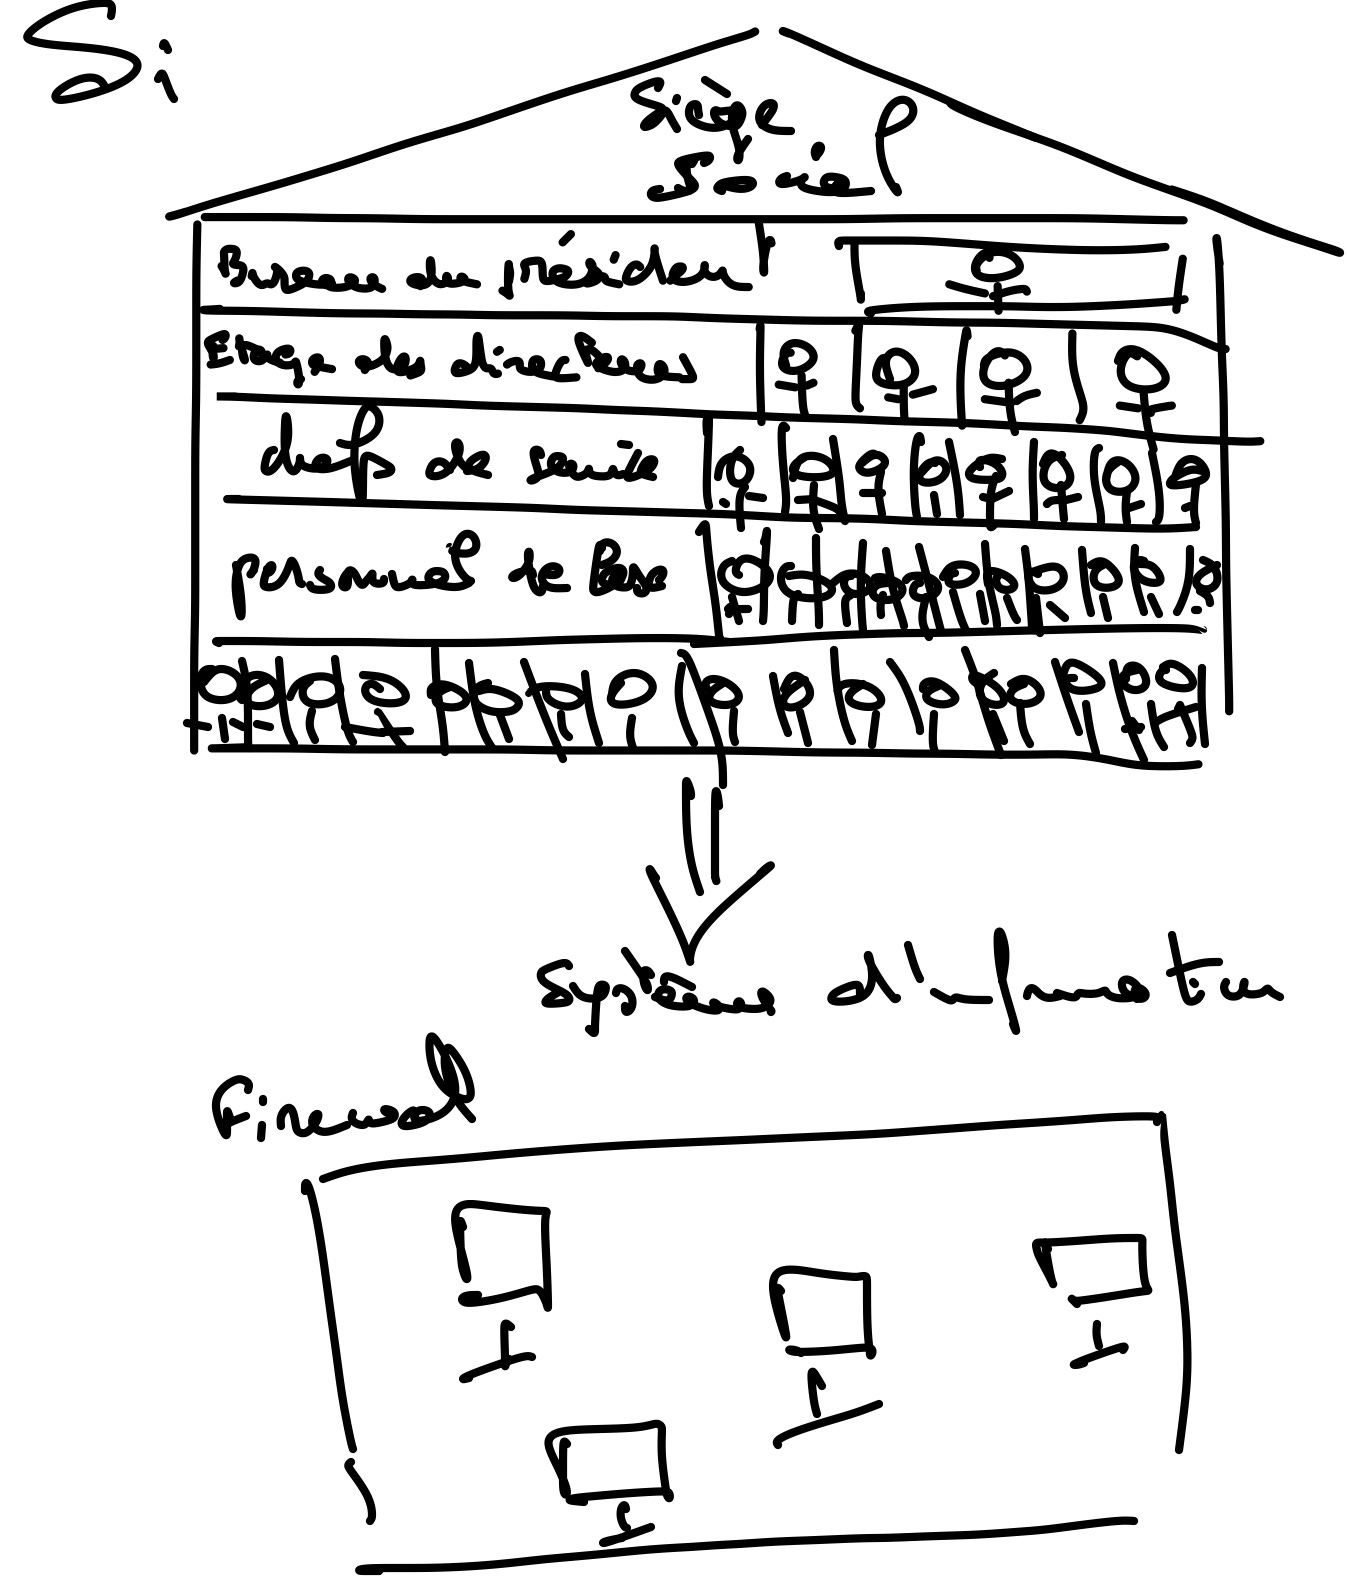 Si
Siège
Social
Bureau du président
Etage des directeurs
chef de service
personnel de Base
Système d'information
Firewall